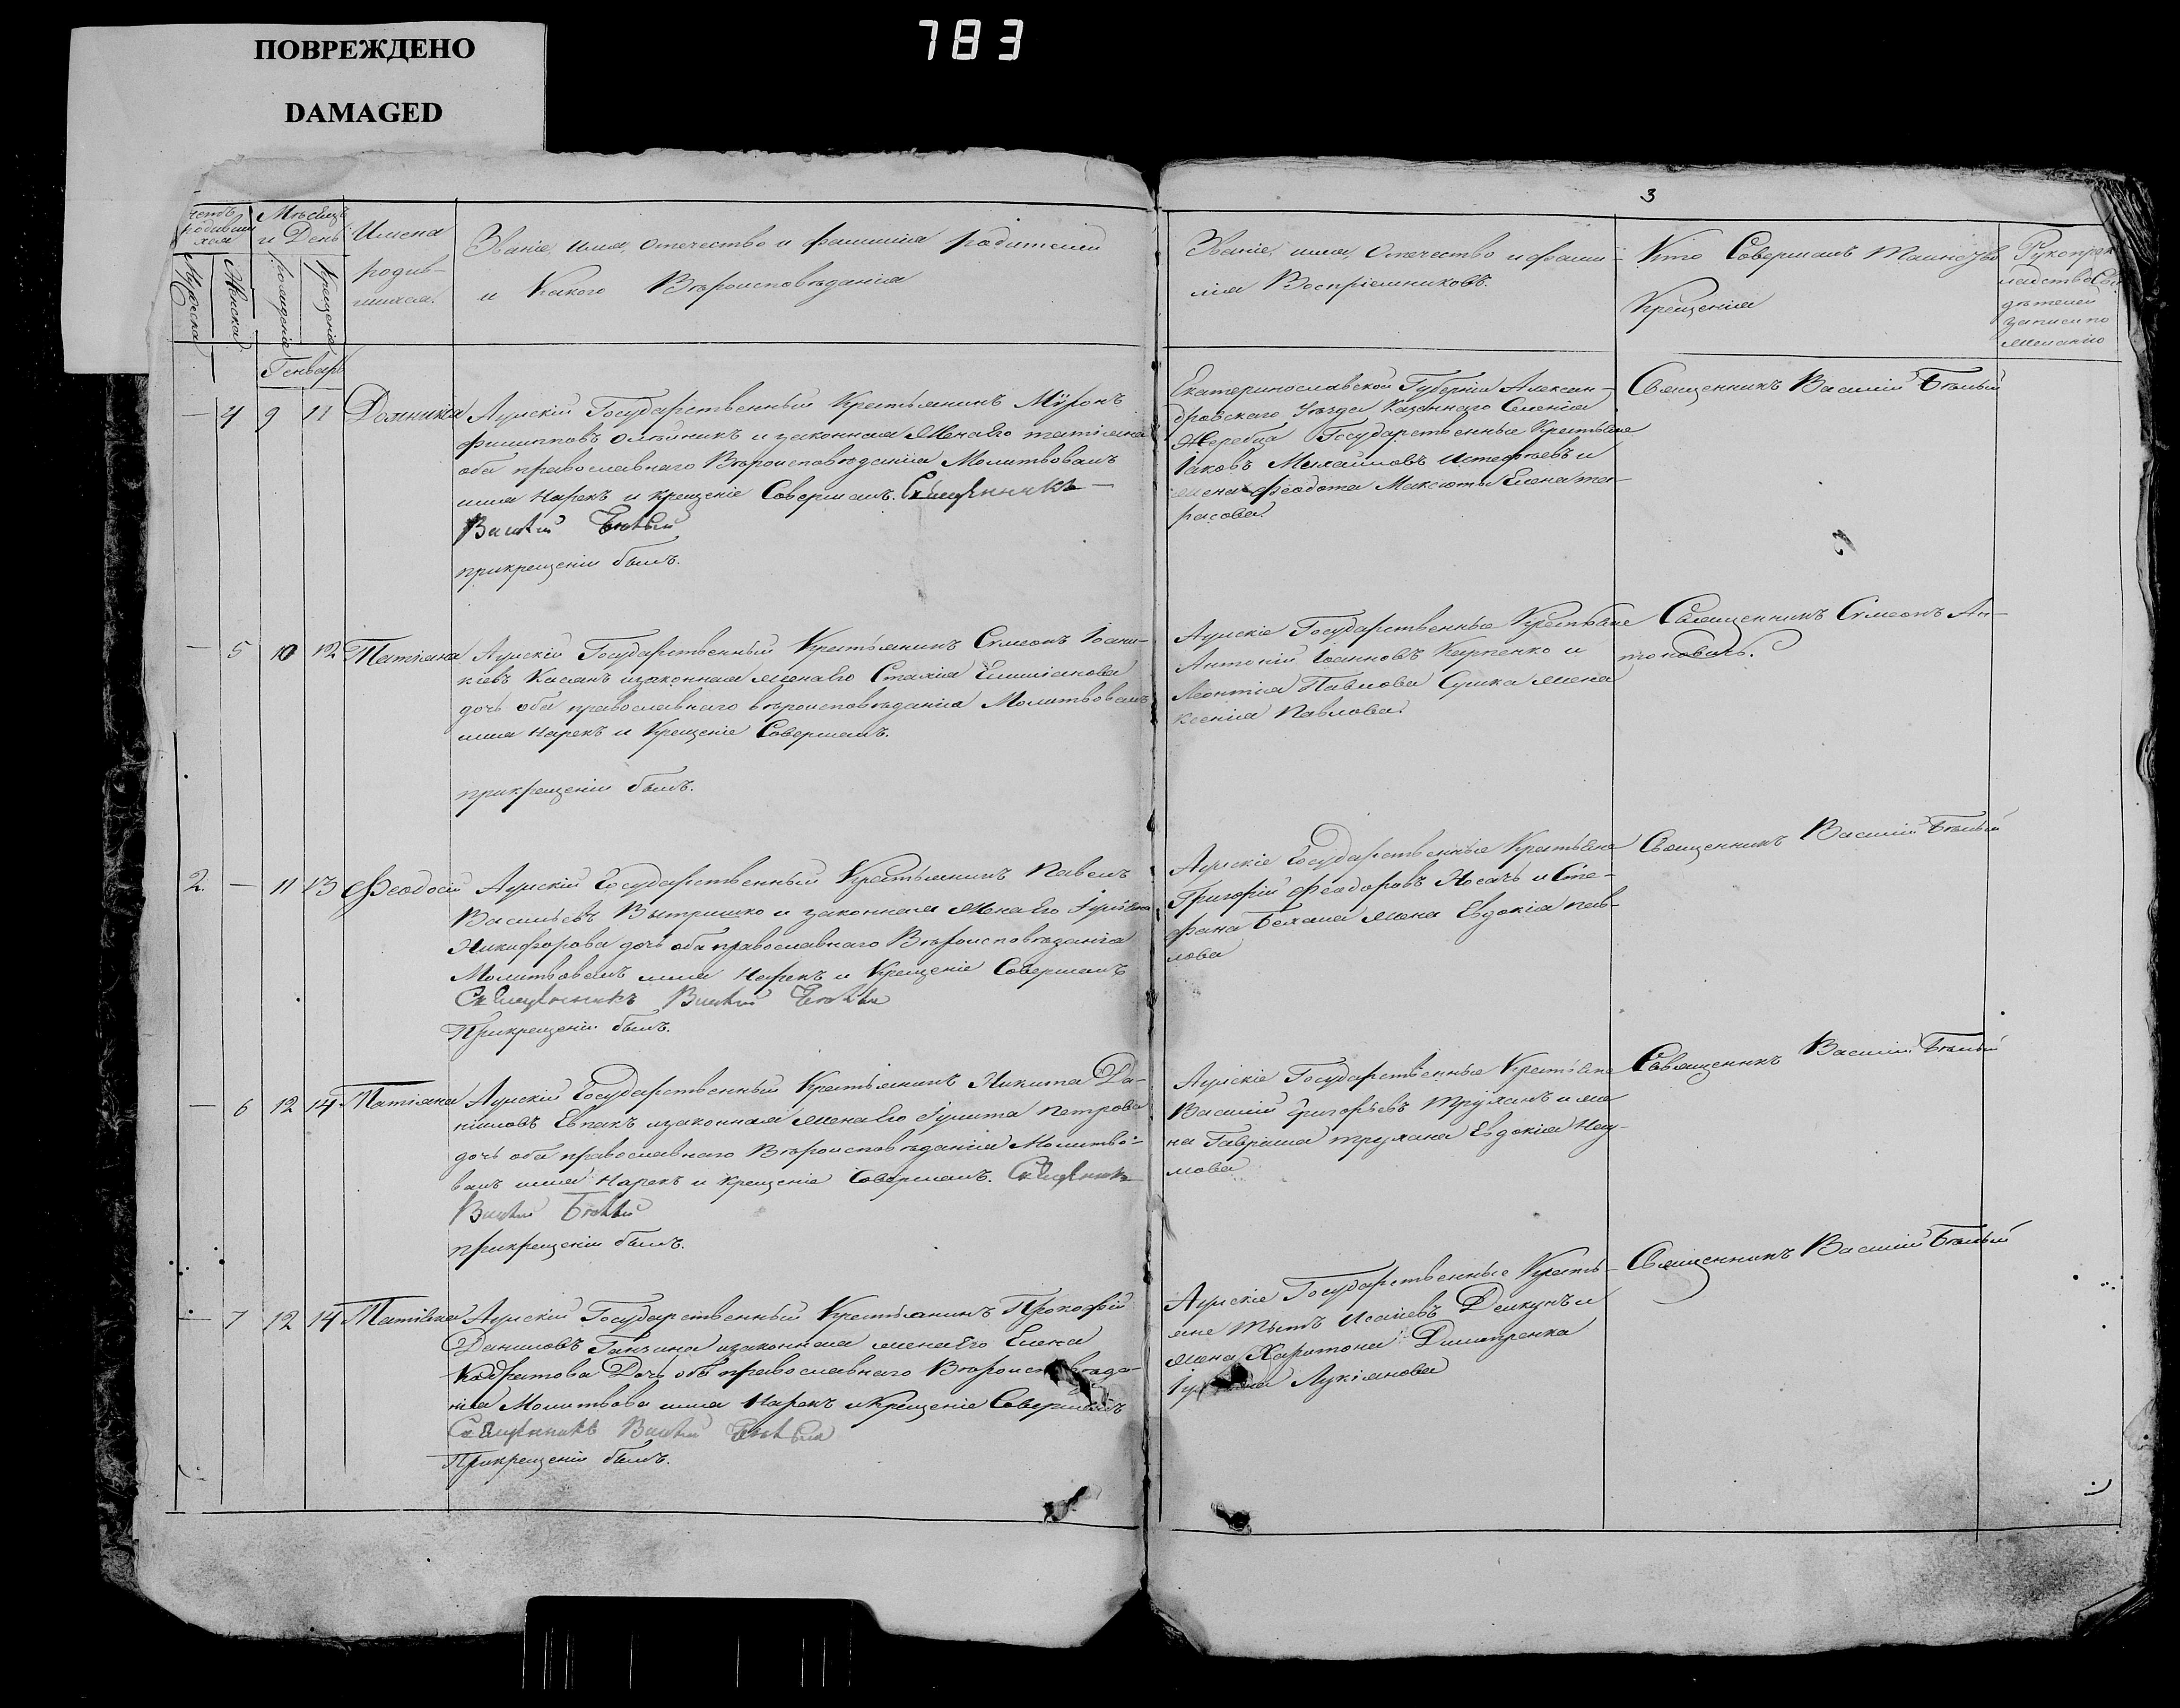 ПОВРЕЖДЕНО
DAMAGED
783
3
Мѣсяцъ
и День
Имена
родив-
шихся.
Званіе, имя, отечество и фамилія родителей
и Какого Вѣроисповѣданія
Мужеска
Женска
рожденіе
крещеніе
Званіе, имя, отечество и фами-
лія Воспріемниковъ.
Кто Совершалъ Таинство
Крещенія
Генварь
— 4 9 11 Домникія Аулскій Государственный Крестьянинъ Мѵронъ
Филипповъ Олѣйникъ и законная Жена Его татіяна
оба православнаго Вѣроисповѣданія Молитвовалъ
имя Нарекъ и крещеніе Совершалъ. Священникъ
Василій Бѣлый
прикрещеніи былъ.
Екатеринославской Губерніи Алексан-
дровскаго Уѣзда Казеннаго Селенія
Жеребца Государственные Крестьяне
Іаковъ Михайловъ и
жена Феодота Елена та-
расова.
Священникъ Василій Бѣлый
— 5 10 12 Татіяна Аулскій Государственный Крестьянинъ Сѵмеонъ Іоани-
кіевъ Касянъ изаконная жена Его Стахія Емиліанова
дочь оба православнаго вѣроисповѣданія Молитвовалъ
имя Нарекъ и Крещеніе Совершалъ.
прикрещеніи былъ.
Аулскіе Государственные Крестьяне
Антоній Іоанновъ Карпенко и
Леонтія Павлова жена
ксенія Павлова.
Священникъ Сѵмеонъ Ан-
тоновъ.
2. — 11 13 Феодосій Аулскій Государственный Крестьянинъ Павелъ
Васильевъ Вытришко и законная Жена Его
Никифорова дочь оба православнаго Вѣроисповѣданія
Молитвовалъ имя Нарекъ и Крещеніе Совершалъ
Священникъ Василій Бѣлый
Прикрещеніи былъ.
Аулскіе Государственные Крестьяне
Григорій Феодоровъ Носачь и Сте-
фана жена Евдокія пав-
лова
Священникъ Василій Бѣлый
— 6 12 14 Татіяна Аулскій Государственный Крестьянинъ Никита Да-
ніиловъ Евпакъ изаконная жена Его Іулита петрова
дочь оба православнаго Вѣроисповѣданія Молитво-
валъ имя Нарекъ и крещеніе Совершалъ. Священникъ
Василій Бѣлый
прикрещеніи былъ.
Аулскіе Государственные Крестьяне
Василій Григорьевъ труханъ и же
на Гаврила трухана Евдокія Нау-
мова
Священникъ Василій Бѣлый
— 7 12 14 Татіяна Аулскій Государственный Крестьянинъ Прокофій
Даниловъ Ганзина изаконная жена Его Елена
Кодратова Дочь оба православнаго
нія Молитвова имя Нарекъ икрещеніе Совершалъ
Священникъ Василій Бѣлый
Прикрещеніи былъ.
Аулскіе Государственные Кресть-
яне Исаіевъ Дейкунъ и
жена Харитона Димитренка
Лукіянова
Священникъ Василій Бѣлый